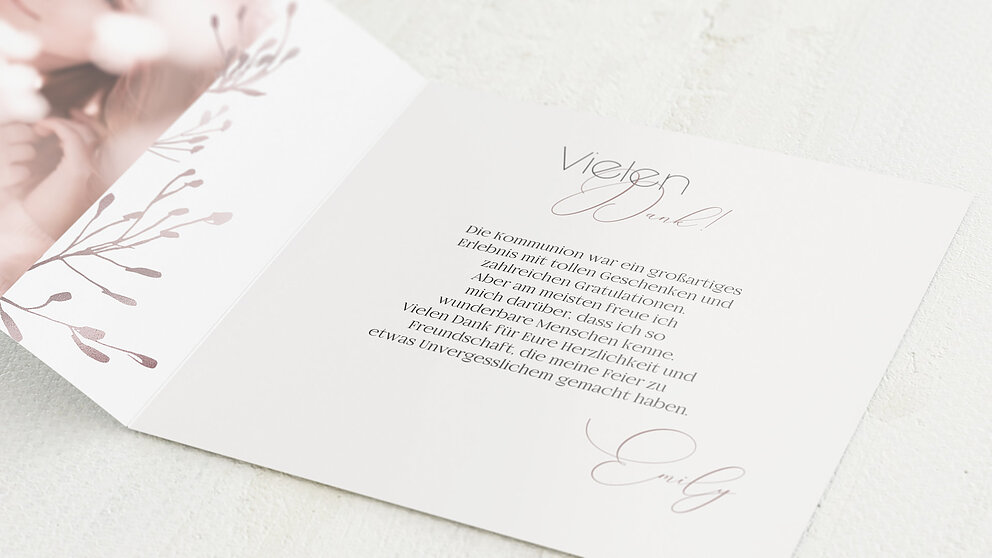 Vielen
Dank!
Die Kommunion war ein großartiges
Erlebnis mit tollen Geschenken und
zahlreichen Gratulationen.
Aber am meisten freue ich
mich darüber, dass ich so
wunderbare Menschen kenne.
Vielen Dank für Eure Herzlichkeit und
Freundschaft, die meine Feier zu
etwas Unvergesslichem gemacht haben.
Emily